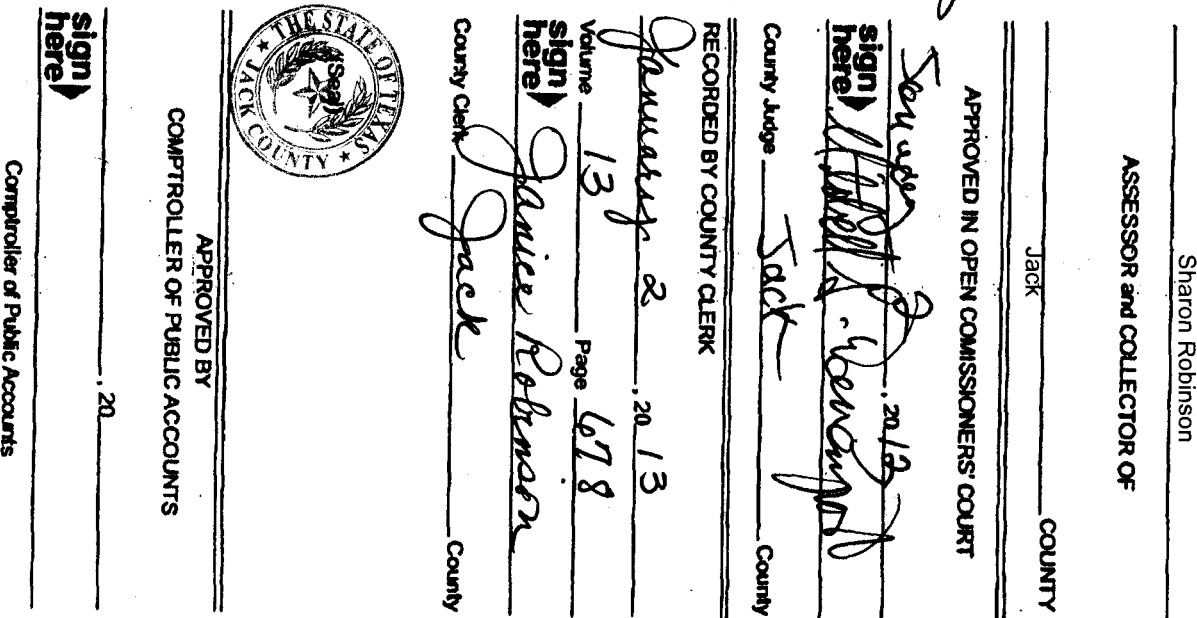 Sharon Robinson
ASSESSOR and COLLECTOR OF
Jack COUNTY
APPROVED IN OPEN COMISSIONERS' COURT
, 20
sign here
County Judge Jack County
RECORDED BY COUNTY CLERK
January 2, 20 13
Volume 13 Page 678
sign here Janice Robinson
County Clerk Jack County
THE STATE OF TEXAS
(Seal)
JACK COUNTY
APPROVED BY
COMPTROLLER OF PUBLIC ACCOUNTS
, 20
sign here
Comptroller of Public Accounts